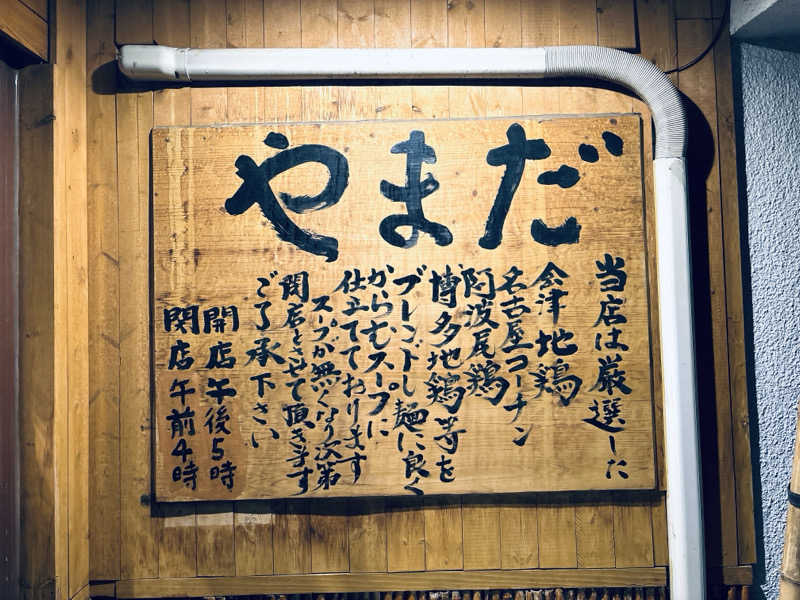 やまだ
当店は厳選した
会津地鶏
名古屋コーチン
阿波尾鶏
博多地鶏等を
ブレンドし麺に良く
からむスープに
仕立てております
スープが無くなり次第
閉店とさせて頂きます
ご了承下さい
開店午後5時
閉店午前4時